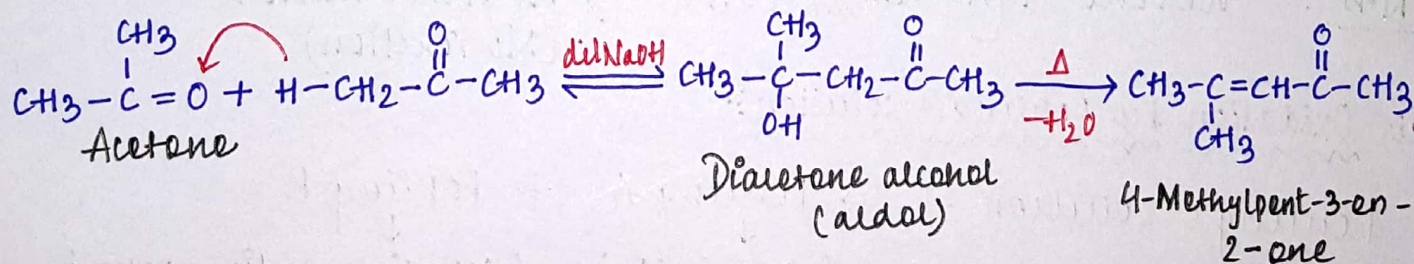 CH3 O CH3 O O
CH3-C=O + H-CH2-C-CH3 dil NaOH ⇌ CH3-C-CH2-C-CH3 Δ → CH3-C=CH-C-CH3
OH -H2O CH3
Acetone
Diacetone alcohol
(aldol)
4-Methylpent-3-en-
2-one